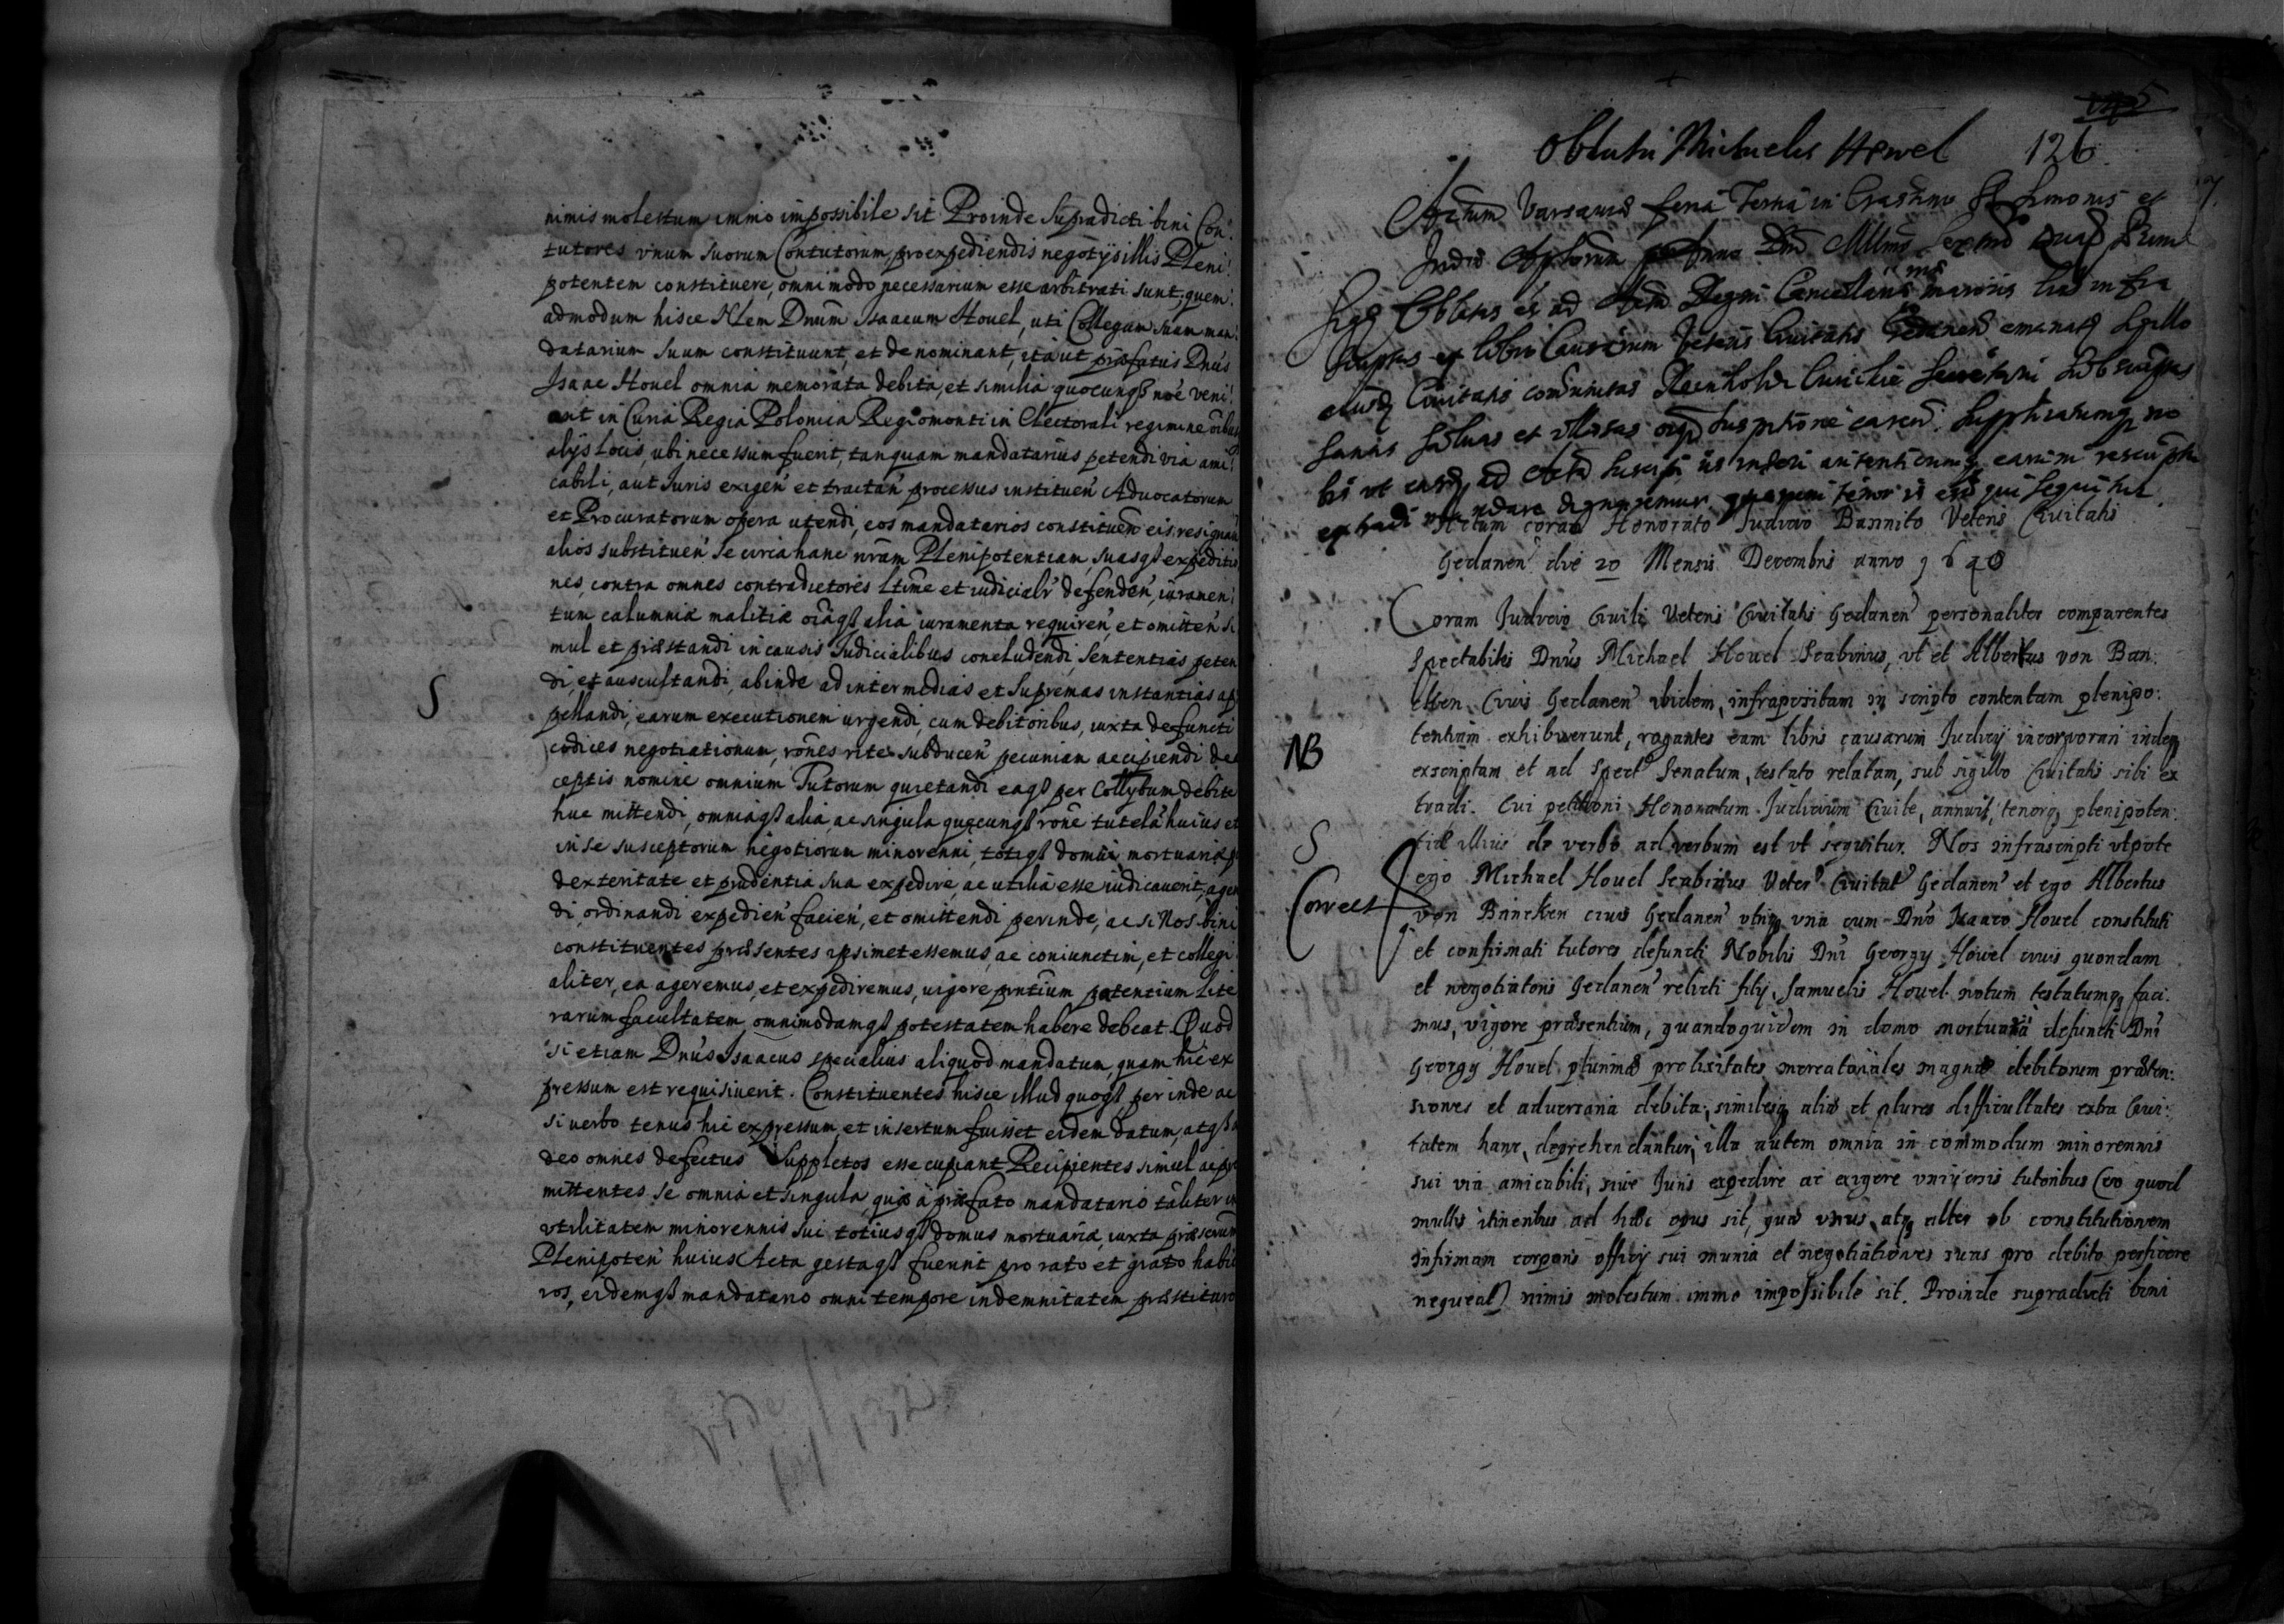 nimis molestum immo impossibile sit Proinde Supradicti bini Con:
tutores vnum suorum Contutorum, pro expediendis negotijs illis Pleni:
potentem constituere, omnimodo necessarium esse arbitrati sunt, quem:
admodum hisce Dnum Isaacum Hovel, uti Collegam suam man:
datarium suum constituunt, et denominant, ita ut præfatus Dnus
Isaac Hovel omnia memorata debita, et similia quocunq noe veni:
ant in Curia Regia Polonica Regiomonti in Electorali regimine
alijs locis, ubi necessum fuerit, tanquam mandatarius petendi via ami:
cabili, aut Juris exigen et tractan processus instituen Advocatorum
et Procuratorum opera utendi, eos mandatarios constituen eis resignan
alios substituen se circa hanc nram Plenipotentiam, suasq expeditio
nes, contra omnes contradictores ltime et iudicialr defenden, iuramen:
tum calumniæ malitiæ oiaq alia iuramenta requiren, et omitten si
mul et præstandi in causis Judicialibus concludendi, sententias peten
di, et auscultandi, abinde ad intermedias et supremas instantias ap
pellandi, earum executionem urgendi, cum debitoribus, iuxta defuncti
codices negotiationum, rones rite subducen pecuniam accipiendi de
ceptis nomine omnium Tutorum quietandi eaq per Collybum debite
huc mittendi, omniaq alia, ac singula quæcunq rone tutelæ huius et
in se susceptorum negotiorum minorenni, totiq domui mortuariæ
dexteritate et prudentia sua expedire, ac utilia esse iudicauerit, agen
di, ordinandi expedien facien, et omittendi perinde, ac si Nos bini
constituentes præsentes ipsimet essemus, ac coniunctim, et collegi
aliter, ea ageremus, et expediremus, vigore pntium patentium lite
rarum facultatem, omnimodamq potestatem habere debeat. Quod
si etiam Dnus Isaacus specialius aliquod mandatum quam hic ex
pressum est requisiuerit. Constituentes hisce illud quoq perinde ac
si verbo tenus hic expressum, et insertum fuisset eidem datum, atq
deo omnes defectus Suppletos esse cupiant Recipientes simul ac
mittentes se omnia et singula, quæ à præfato mandatario taliter in
vtilitatem minorennis sui totiusq domus mortuariæ, iuxta
Plenipoten huius Acta gestaq fuerint pro rato et grato habi
ros, eidemq mandatario omni tempore indemnitatem præstituro
S
vide fol 132
Oblata Michaelis Hewel 126
Actum Varsauiæ feria Tertia in Crastino Simonis et
Judæ Aplorum Anno Dni Millmo
Oblatis es ad Regni Cancellariæ maioris
scriptas ex libro Causarum Veteris Ciuitatis Gedanen emanatas sigillo
eiusdem Ciuitatis communitas
sanas saluas et illæsas suspitione caren. Supplicatumq no
bis vt ad Acta suscipi iis inseri autenticumq earum rescriptum
extradi mandare dignaremur quarum tenor is est qui sequitur
Actum coram Honorato Judicio Bannito Veteris Ciuitatis
Gedanen die 20 Mensis Decembris anno 1640
Coram Judicio Ciuili Veteris Ciuitatis Gedanen personaliter comparentes
Spectabiles Dnus Michael Hovel Scabinus, vt et Albertus von Ban:
cken Ciuis Gedanen ibidem, infrapositam in scripto contentam plenipo:
tentiam exhibuerunt, rogantes eam libris causarum Judicij incorporari indeq
exscriptam et ad Spect Senatum, testato relatam, sub sigillo Ciuitatis sibi ex
tradi. Cui petitioni Honoratum Judicium Ciuile, annuit, tenorq plenipoten:
tiæ illius de verbo ad verbum est vt sequitur. Nos infrascripti vtpote
ego Michael Hovel Scabinus Veter Ciuitat Gedanen et ego Albertus
von Bancken ciuis Gedanen vtriq vna cum Dno Isaaco Hovel constituti
et confirmati tutores defuncti Nobilis Dni Georgy Howel ciuis quondam
et negotiatoris Gedanen relicti filij, Samuelis Hovel notum testatumq faci:
mus, vigore præsentium, quandoquidem in domo mortuaria defuncti Dni
Georgy Hovel plurimæ prolixitates mercatoriales magnæ debitorum præten:
siones et aduersaria debita, similesq aliæ et plures difficultates extra Ciui:
tatem hanc, deprehendantur, illa autem omnia in commodum minorennis
sui via amicabili, siue Juris expedire ac exigere vniuersis tutoribus (eo quod
multis itineribus ad hæc opus sit, quæ vnus atq alter ob constitutionem
infirmam corporis officij sui munia et negotiationes suas pro debito perficere
nequeat) nimis molestum immo impossibile sit. Proinde supradicti bini
NB
S
Correct